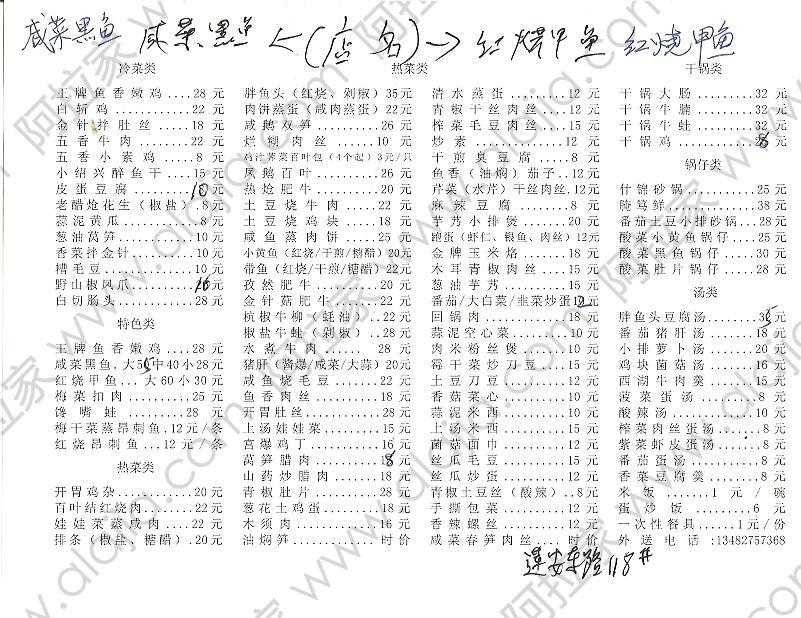 咸菜黑鱼 咸菜黑鱼 <(店名)-> 红烧甲鱼 红烧甲鱼
冷菜类
王牌鱼香嫩鸡....28元
白斩鸡............22元
金针拌肚丝......18元
五香牛肉.........22元
五香小素鸡......8元
小绍兴醉鱼干....15元
皮蛋豆腐.........10元
老醋炝花生(椒盐).8元
蒜泥黄瓜.........8元
葱油莴笋.........10元
香菜拌金针......10元
糟毛豆............10元
野山椒凤爪......16元
白切肠头.........28元
特色类
王牌鱼香嫩鸡....28元
咸菜黑鱼.大5中40小28元
红烧甲鱼...大60小30元
梅菜扣肉.........25元
馋嘴蛙............28元
梅干菜蒸昂刺鱼.12元/条
红烧昂刺鱼...12元/条
热菜类
开胃鸡杂.........20元
百叶结红烧肉....22元
娃娃菜蒸咸肉....22元
排条(椒盐、糖醋).20元
热菜类
胖鱼头(红烧、剁椒)35元
肉饼蒸蛋(咸肉蒸蛋)22元
咸鹅双笋.........26元
烂糊肉丝.........10元
鸡汁荠菜百叶包(4个起)3元/只
凤鹅百叶.........26元
热炝肥牛.........20元
土豆烧牛肉......22元
土豆烧鸡块......18元
咸鱼蒸肉饼......25元
小黄鱼(红烧/干煎/糖醋)20元
带鱼(红烧/干煎/糖醋)22元
孜然肥牛.........20元
金针菇肥牛......22元
杭椒牛柳(蚝油)..22元
椒盐牛蛙(剁椒)..28元
水煮牛肉.........28元
猪肝(酱爆/咸菜/大蒜)20元
咸鱼烧毛豆......22元
鱼香肉丝.........18元
开胃肚丝.........28元
上汤娃娃菜......15元
宫爆鸡丁.........16元
莴笋腊肉.........18元
山药炒腊肉......18元
青椒肚片.........28元
葱花土鸡蛋......18元
木须肉............16元
油焖笋............时价
清水蒸蛋.........12元
青椒干丝肉丝....12元
榨菜毛豆肉丝....15元
炒素...............12元
干煎臭豆腐......8元
鱼香(油焖)茄子..12元
芹菜(水芹)干丝肉丝.12元
麻辣豆腐.........8元
芋艿小排煲......20元
跑蛋(虾仁、银鱼、肉丝)12元
金牌玉米烙......18元
木耳青椒肉丝....15元
葱油芋艿.........15元
番茄/大白菜/韭菜炒蛋12元
回锅肉............18元
蒜泥空心菜......10元
肉米粉丝煲......10元
霉干菜炒刀豆....15元
土豆刀豆.........12元
香菇菜心.........10元
蒜泥米西.........10元
上汤米西.........15元
菌菇面巾.........12元
丝瓜毛豆.........15元
丝瓜炒蛋.........12元
青椒土豆丝(酸辣)..8元
手撕包菜.........12元
香辣螺丝.........12元
咸菜春笋肉丝....时价
干锅类
干锅大肠.........32元
干锅牛腩.........32元
干锅牛蛙.........32元
干锅鸡............28元
锅仔类
什锦砂锅.........25元
腌笃鲜............38元
番茄土豆小排砂锅...28元
酸菜小黄鱼锅仔....25元
酸菜黑鱼锅仔......30元
酸菜肚片锅仔......28元
汤类
胖鱼头豆腐汤......3元
番茄猪肝汤.........18元
小排萝卜汤.........20元
鸡块菌菇汤.........16元
西湖牛肉羹.........15元
菠菜蛋汤............8元
酸辣汤...............10元
榨菜肉丝蛋汤......8元
紫菜虾皮蛋汤......8元
番茄蛋汤............8元
香菜豆腐羹.........8元
米饭.........1元/碗
蛋炒饭.........6元
一次性餐具......1元/份
外送电话:13482757368
莲安东路118#
www.alajia.com 阿拉家